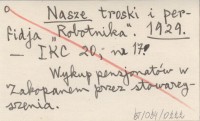 Nasze troski i per-
fidja „Robotnika". 1929.
— IKC 20; nr 178
Wykup pensjonatów w
Zakopanem przez stowarzy-
szenia.